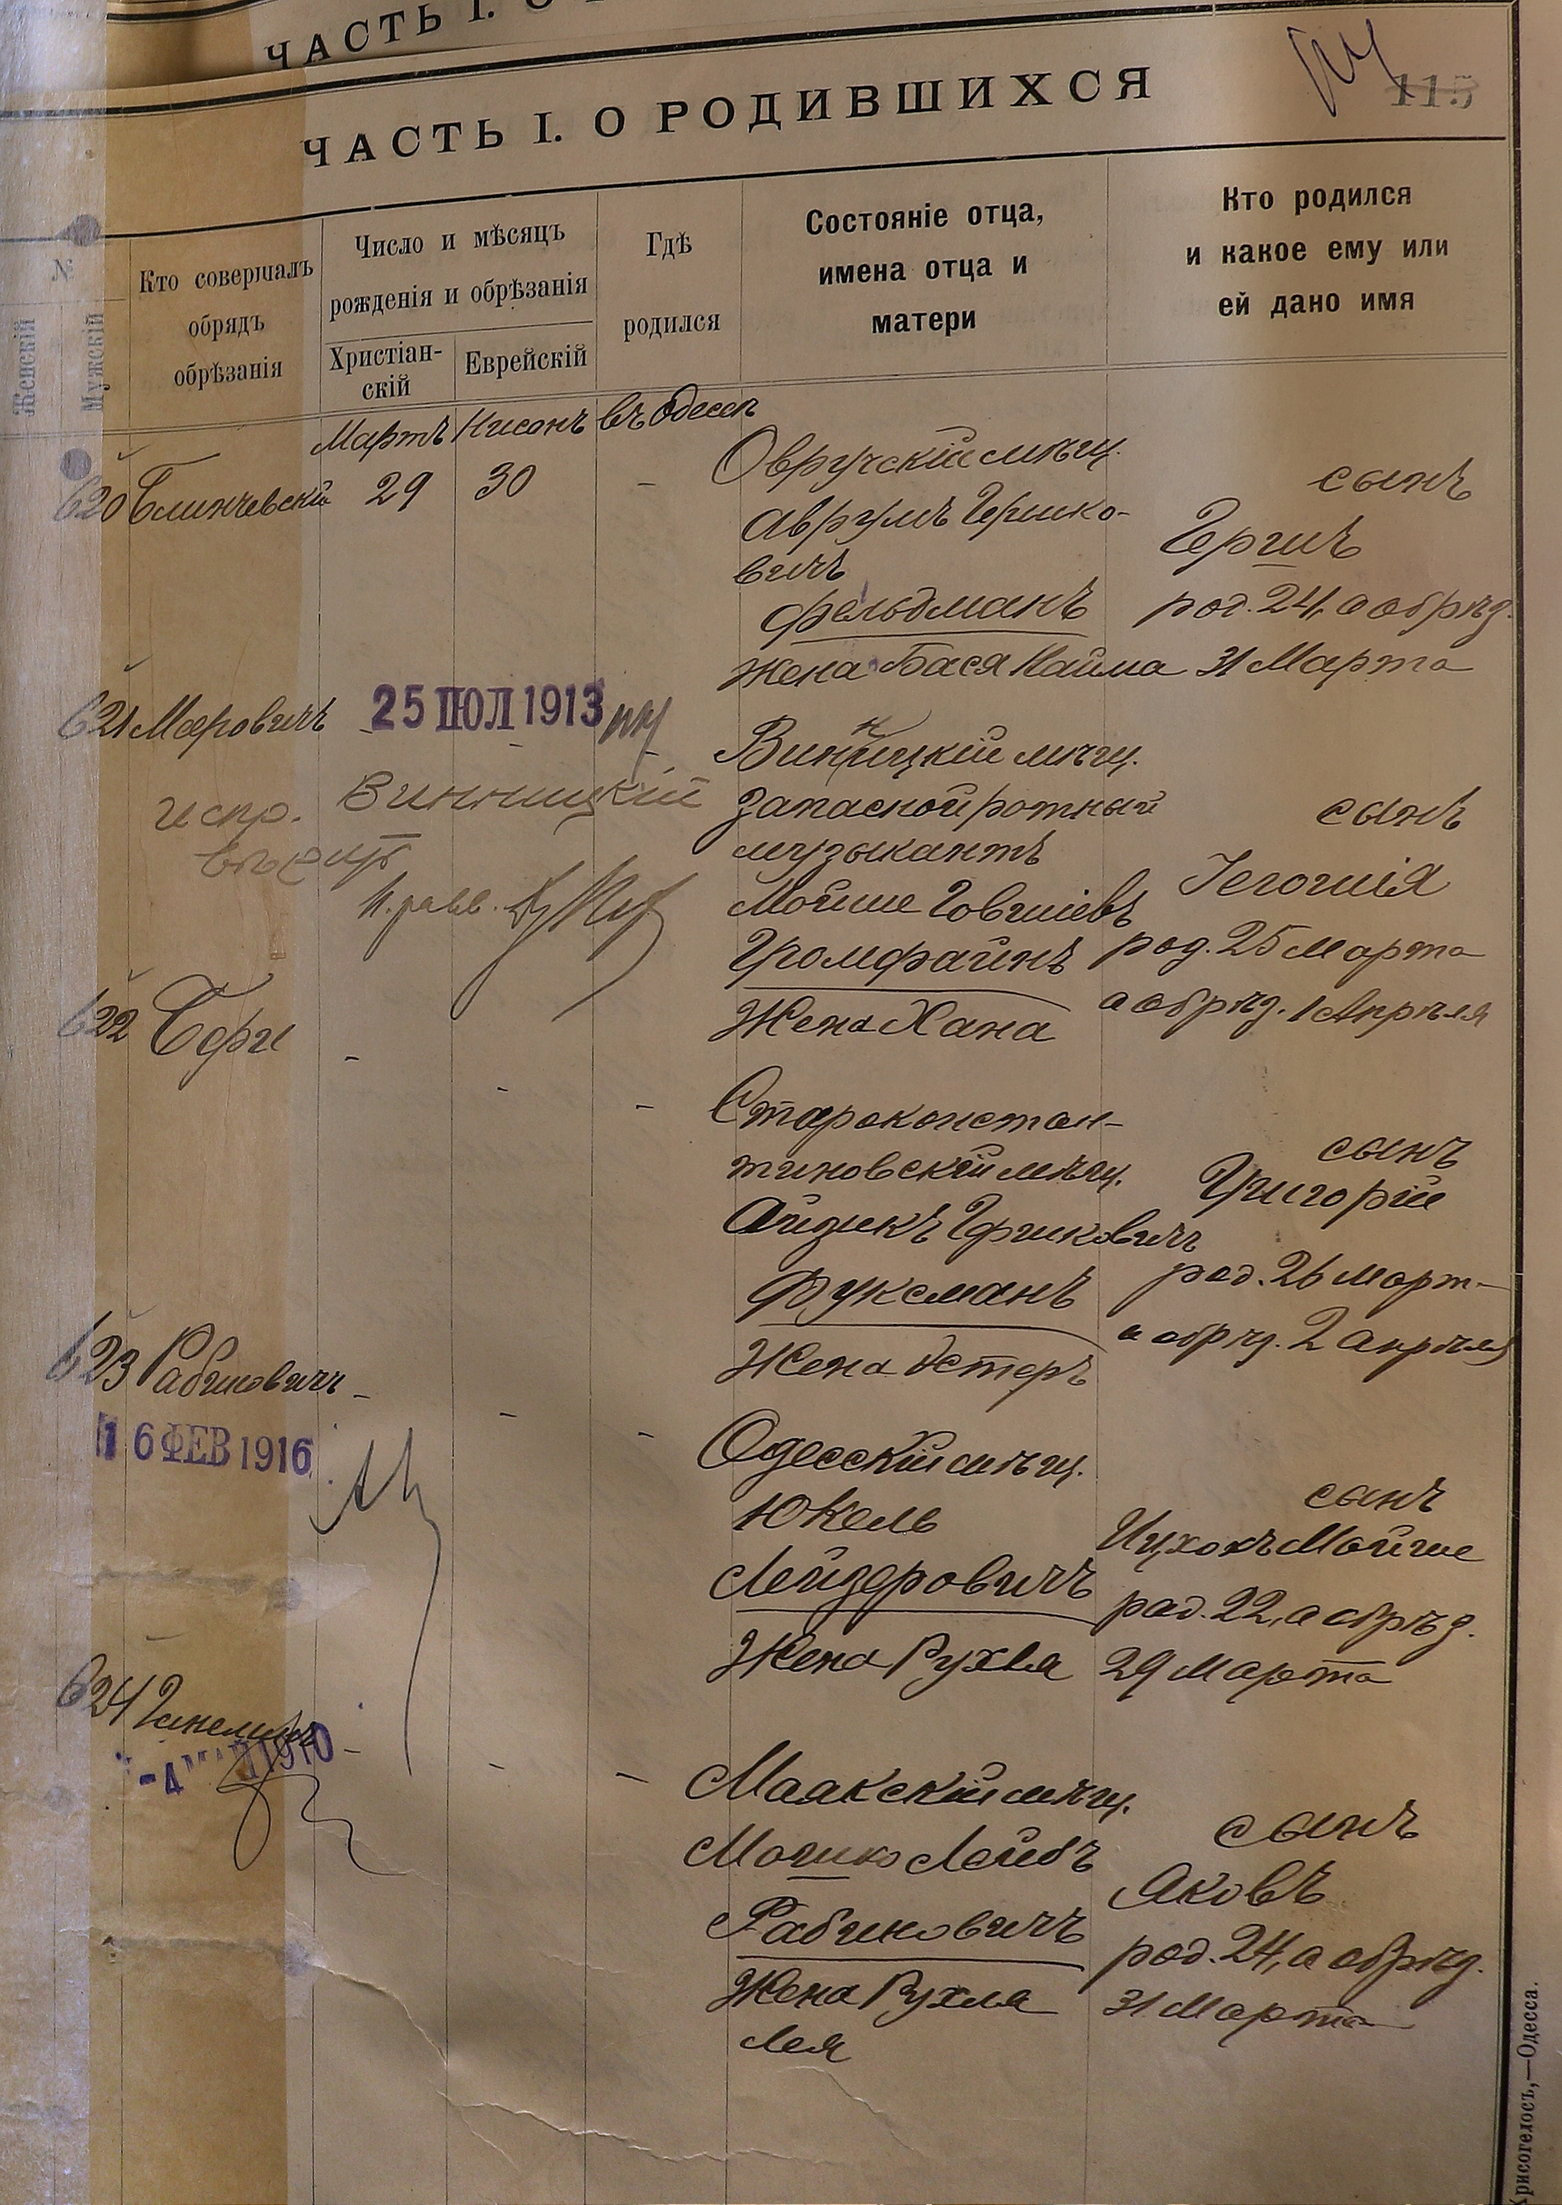 ЧАСТЬ I. О
ЧАСТЬ I. О РОДИВШИХСЯ
115
№
Женскій
Мужскій
Кто совершалъ
обрядъ
обрѣзанія
Число и мѣсяцъ
рожденія и обрѣзанія
Христіан-
скій
Еврейскій
Гдѣ
родился
Состояніе отца,
имена отца и
матери
Кто родился
и какое ему или
ей дано имя
Мартъ Нисонъ въ Одессѣ
620 Блинчевскій 29 30 -
Овручскій мѣщ.
Аврумъ Гершко-
вичъ
Фельдманъ
Жена Бася Найма
сынъ
Гершъ
род. 24, а обрѣз.
31 Марта
621 Меровичъ - - -
25 ІЮЛ 1913
испр. Винницкій
вѣрить
Винницкій мѣщ.
Запасной ротный
музыкантъ
Мойше Говшіевъ
Громфайнъ
Жена Хана
сынъ
Іегошія
род. 25 Марта
а обрѣз. 1 Апрѣля
622 Берш - - -
Староконстан-
тиновскій мѣщ.
Айзикъ Гершковичъ
Фуксманъ
Жена Эстеръ
сынъ
Григорій
род. 26 Март
а обрѣз. 2 апрѣля
623 Рабиновичъ - - -
16 ФЕВ 1916
Одесскій мѣщ.
Юкель
Лейзеровичъ
Жена Рухля
сынъ
Ицхокъ Мойше
род. 22, а обрѣз.
29 Марта
624 Ганелинъ - - -
-4 1910
Маякскій мѣщ.
Мошко Лейбъ
Рабиновичъ
Жена Рухля
Лея
сынъ
Яковъ
род. 24, а обрѣз.
31 Марта
Хрисогелосъ,—Одесса.